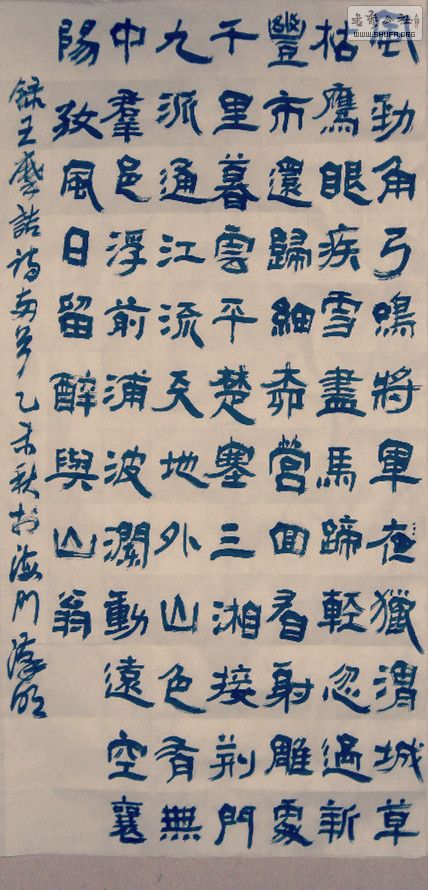 書藝公社
WWW.SHUFA.ORG
風勁角弓鳴將軍夜獵渭城草
枯鷹眼疾雪盡馬蹄輕忽過新
豐市還歸細柳營回看射雕處
千里暮雲平楚塞三湘接荆門
九派通江流天地外山色有無
中羣邑浮前浦波瀾動遠空襄
陽好風日留醉與山翁
録王摩詰詩兩首乙未秋於海門